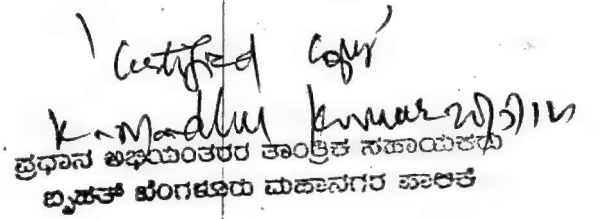 'Certified Copy'
K. Madhu Kumar
ಪ್ರಧಾನ ಅಭಿಯಂತರರ ತಾಂತ್ರಿಕ ಸಹಾಯಕರು
ಬೃಹತ್ ಬೆಂಗಳೂರು ಮಹಾನಗರ ಪಾಲಿಕೆ